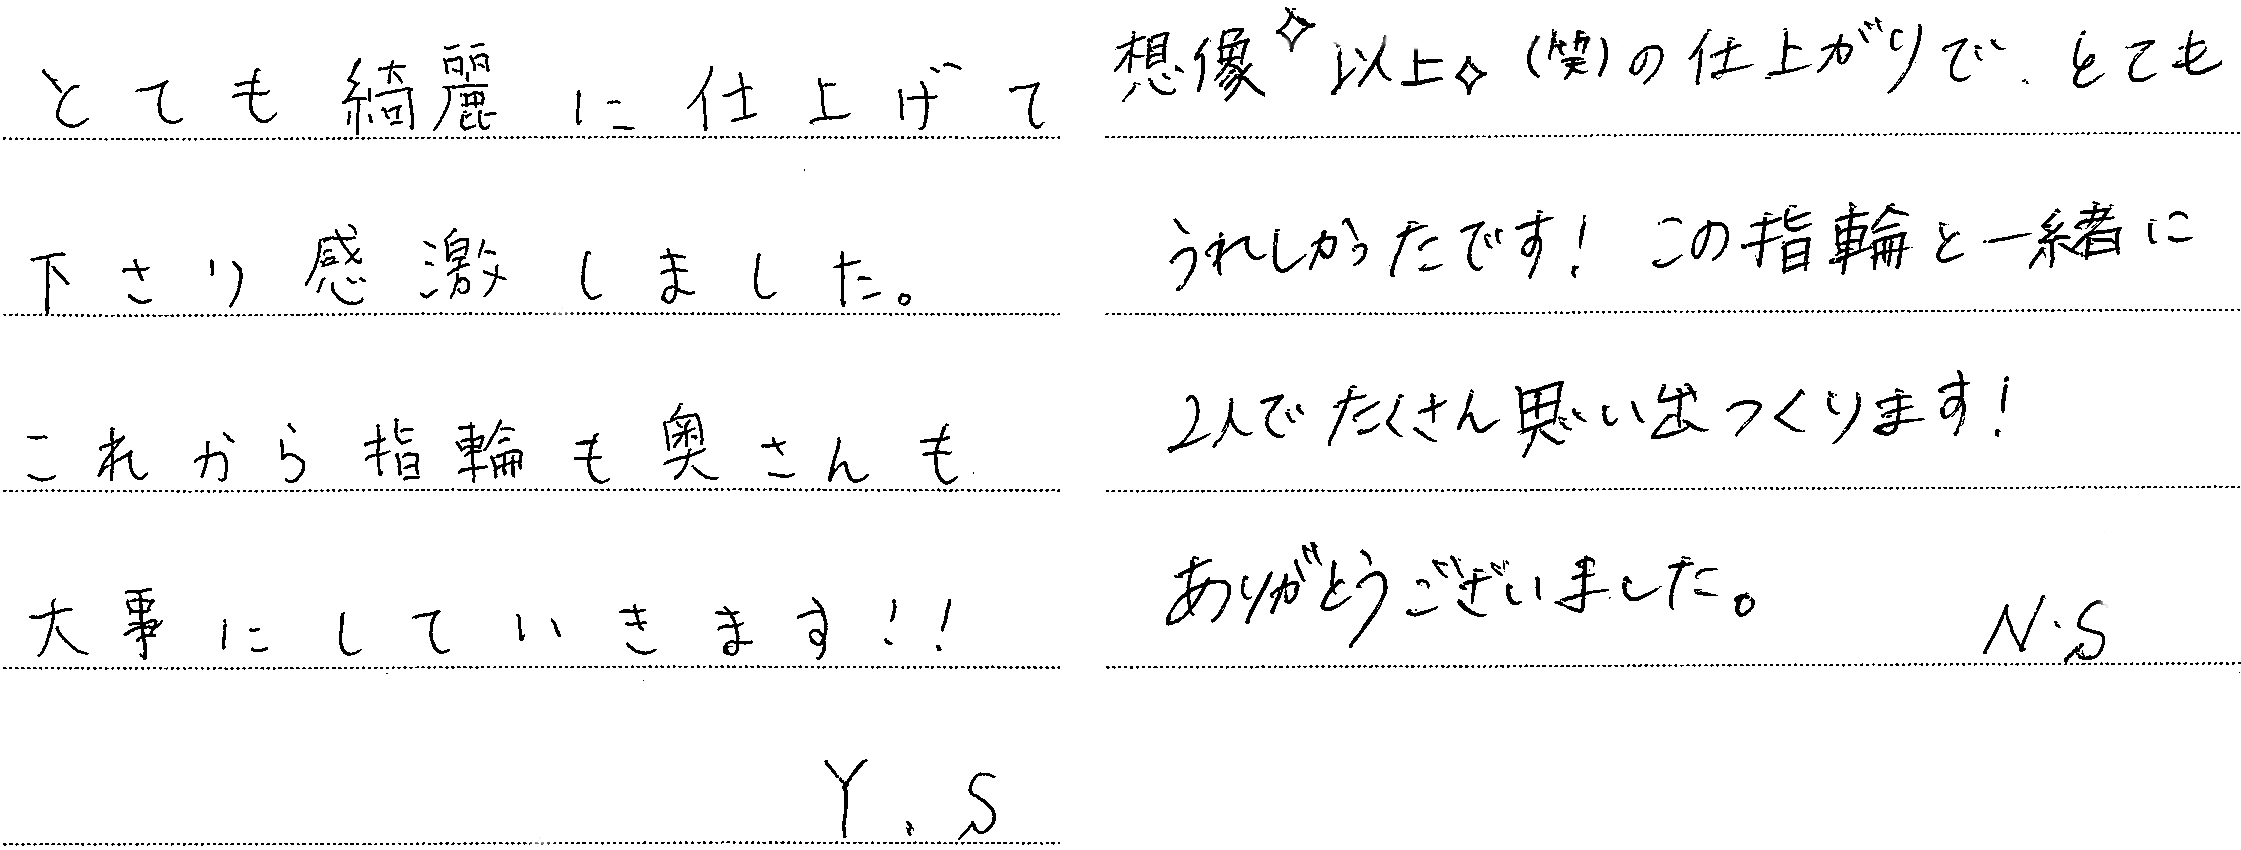 とても綺麗に仕上げて
下さり感激しました。
これから指輪も奥さんも
大事にしていきます!!
Y.S
想像✧以上✧(笑)の仕上がりで、とても
うれしかったです! この指輪と一緒に
2人でたくさん思い出つくります!
ありがとうございました。
N.S